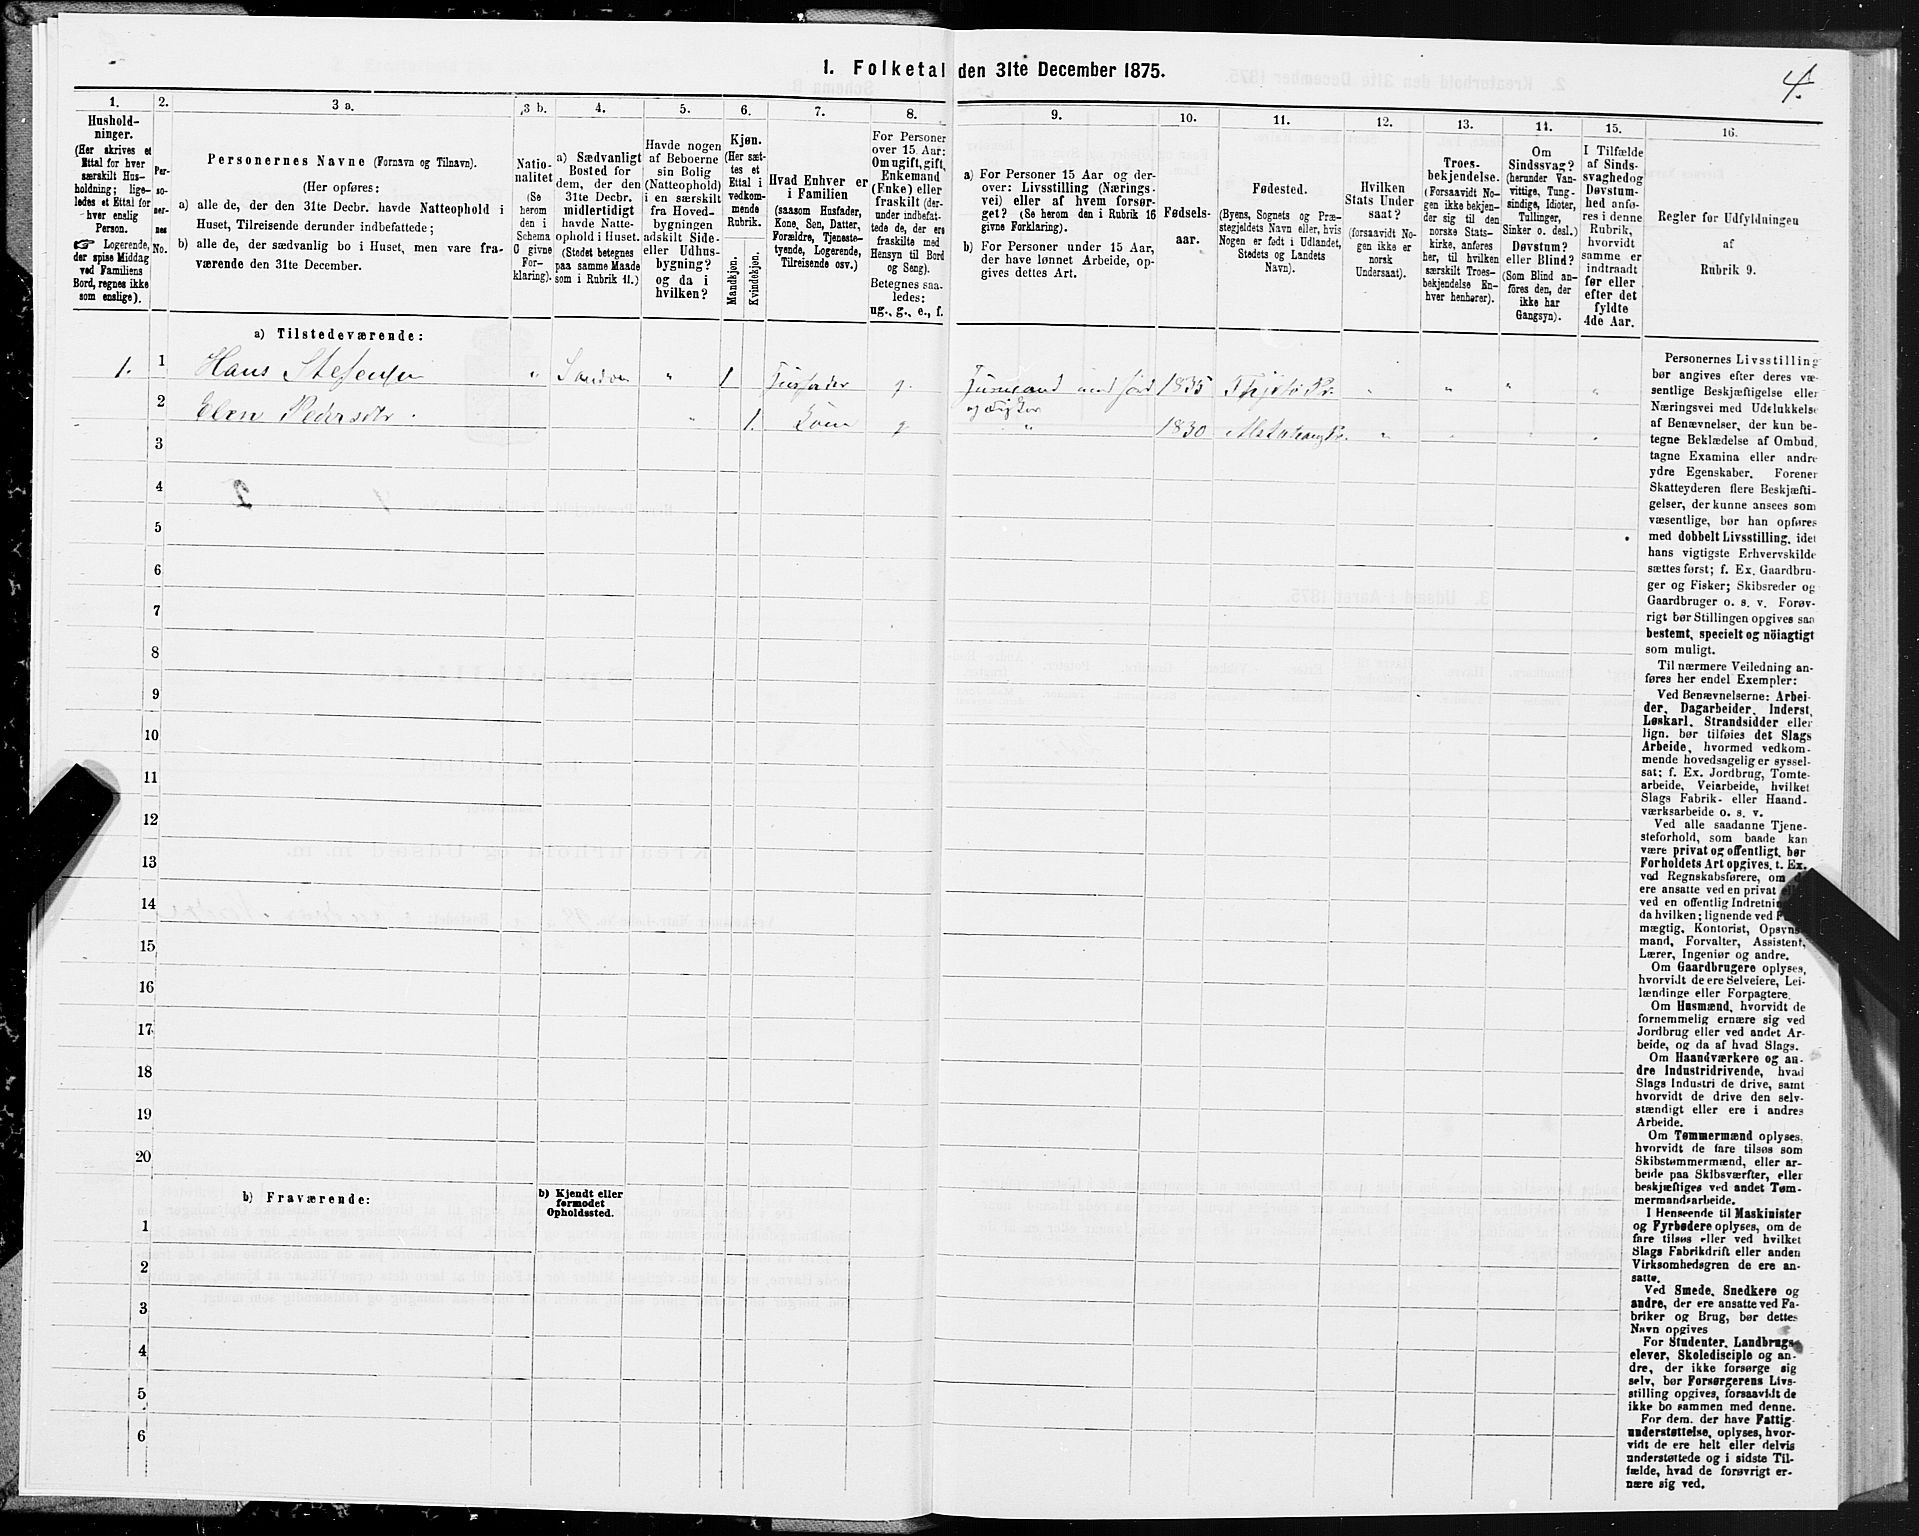 1. Folketal den 31te December 1875.
4.
1.
2.
3 a.
3 b.
4.
5.
6.
7.
8.
9.
10.
11.
12.
13.
14.
15.
16.
Hushold-
ninger.
(Her skrives et
Ettal for hver
særskilt Hus-
holdning; lige-
ledes et Ettal for
hver enslig
Person.
☞ Logerende,
der spise Middag
ved Familiens
Bord, regnes ikke
som enslige).
Per-
so-
ner-
nes
No.
Personernes Navne (Fornavn og Tilnavn).
(Her opføres:
a) alle de, der den 31te Decbr. havde Natteophold i
Huset, Tilreisende derunder indbefattede;
b) alle de, der sædvanlig bo i Huset, men vare fra-
værende den 31te December.
Natio-
nalitet
(Se
herom
den i
Schema
0 givne
For-
klaring).
a) Sædvanligt
Bosted for
dem, der den
31te Decbr.
midlertidigt
havde Natte-
ophold i Huset.
(Stedet betegnes
paa samme Maade
som i Rubrik 11.)
Havde nogen
af Beboerne
sin Bolig
(Natteophold)
i en særskilt
fra Hoved-
bygningen
adskilt Side-
eller Udhus-
bygning?
og da i
hvilken?
Kjøn.
(Her sæt-
tes et
Ettal i
vedkom-
mende
Rubrik.
Mandkjøn.
Kvindekjøn.
Hvad Enhver er
i Familien
(saasom Husfader,
Kone, Søn, Datter,
Forældre, Tjeneste-
tyende, Logerende,
Tilreisende osv.)
For Personer
over 15 Aar:
Om ugift, gift,
Enkemand
(Enke) eller
fraskilt (der-
under indbefat-
tede de, der ere
fraskilte med
Hensyn til Bord
og Seng).
Betegnes saa-
ledes:
ug., g., e., f.
a) For Personer 15 Aar og der-
over: Livsstilling (Nærings-
vei) eller af hvem forsør-
get? (Se herom den i Rubrik 16
givne Forklaring).
b) For Personer under 15 Aar,
der have lønnet Arbeide, op-
gives dettes Art.
Fødsels-
aar.
Fødested.
(Byens, Sognets og Præ-
stegjeldets Navn eller, hvis
Nogen er født i Udlandet,
Stedets og Landets
Navn).
Hvilken
Stats Under
saat?
(forsaavidt No-
gen ikke er
norsk
Undersaat).
Troes-
bekjendelse.
(Forsaavidt No-
gen ikke bekjen-
der sig til den
norske Stats-
kirke, anføres
her, til hvilken
særskilt Troes-
bekjendelse En-
hver henhører).
Om
Sindssvag?
(herunder Van-
vittige, Tung-
sindige, Idioter,
Tullinger,
Sinker o. desl.)
Døvstum?
eller Blind?
(Som Blind an-
føres den, der
ikke har
Gangsyn).
I Tilfælde
af Sinds-
svaghed og
Døvstum-
hed anfø-
res i denne
Rubrik,
hvorvidt
samme er
indtraadt
før eller
efter det
fyldte
4de Aar.
Regler for Udfyldningen
af
Rubrik 9.
a) Tilstedeværende:
1. 1 Hans Stefensen " Sandvær " 1 Husfader g. Husmand med Jord 1835 Thjøtø Pr. " " " "
og Fisker
2 Elen Pedersdtr. " 1. Kone g " 1830 Alstahaug Pr. " " " "
3
4
2
5
6
7
8
9
10
11
12
13
14
15
16
17
18
19
20
b) Fraværende:
b) Kjendt eller
formodet
Opholdssted.
1
2
3
4
5
6
Personernes Livsstilling
bør angives efter deres væ-
sentlige Beskjæftigelse eller
Næringsvei med Udelukkelse
af Benævnelser, der kun be-
tegne Beklædelse af Ombud,
tagne Examina eller andre
ydre Egenskaber. Forener
Skatteyderen flere Beskjæfti-
gelser, der kunne ansees som
væsentlige, bør han opføres
med dobbelt Livsstilling, idet
hans vigtigste Erhvervskilde
sættes først; f. Ex. Gaardbru-
ger og Fisker; Skibsreder og
Gaardbruger o. s. v. Forøv-
rigt bør Stillingen opgives saa
bestemt, specielt og nöiagtigt
som muligt.
Til nærmere Veiledning an-
føres her endel Exempler:
Ved Benævnelserne: Arbei-
der, Dagarbeider, Inderst,
Løskarl, Strandsidder eller
lign. bør tilføies det Slags
Arbeide, hvormed vedkom-
mende hovedsagelig er syssel-
sat; f. Ex. Jordbrug, Tomte-
arbeide, Veiarbeide, hvilket
Slags Fabrik- eller Haand-
værksarbeide o. s. v.
Ved alle saadanne Tjene-
steforhold, som baade kan
være privat og offentligt, bør
Forholdets Art opgives, t. Ex.
ved Regnskabsførere, om
ere ansatte ved en privat
ved en offentlig Indretning
da hvilken; lignende ved
mægtig, Kontorist, Opsyns-
mand, Forvalter, Assistent,
Lærer, Ingeniør og andre.
Om Gaardbrugere oplyses,
hvorvidt de ere Selveiere, Lei-
lændinge eller Forpagtere.
Om Husmænd, hvorvidt de
fornemmelig ernære sig ved
Jordbrug eller ved andet Ar-
beide, og da af hvad Slags.
Om Haandværkere og an-
dre Industridrivende, hvad
Slags Industri de drive, samt
hvorvidt de drive den selv-
stændigt eller ere i andres
Arbeide.
Om Tømmermænd oplyses,
hvorvidt de fare tilsøs som
Skibstømmermænd, eller ar-
beide paa Skibsværfter, eller
beskjæftiges ved andet Tøm-
mermandsarbeide.
I Henseende til Maskinister
og Fyrbødere oplyses, om de
fare tilsøs eller ved hvilket
Slags Fabrikdrift eller anden
Virksomhedsgren de ere an-
satte.
Ved Smede, Snedkere og
andre, der ere ansatte ved Fa-
briker og Brug, bør dettes
Navn opgives
For Studenter, Landbrugs-
elever, Skoledisciple og an-
dre, der ikke forsørge sig
selv, bør Forsørgerens Livs-
stilling opgives, forsaavidt de
ikke bo sammen med denne.
For dem, der have Fattig-
understøttelse, oplyses, hvor-
vidt de ere helt eller delvis
understøttede og i sidste Til-
fælde, hvad de forøvrigt er-
nære sig ved.